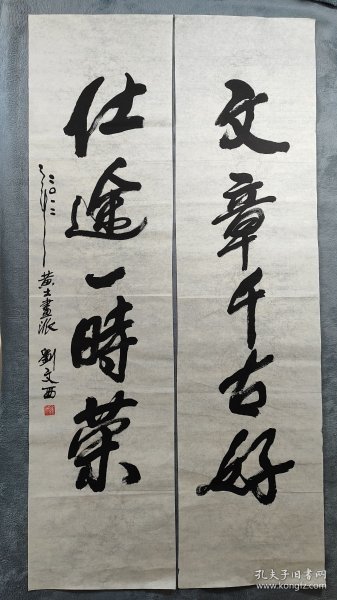 文章千古好
仕途一時荣
二〇一二
黄土畫派 劉文西
孔夫子旧书网
www.kongfz.com